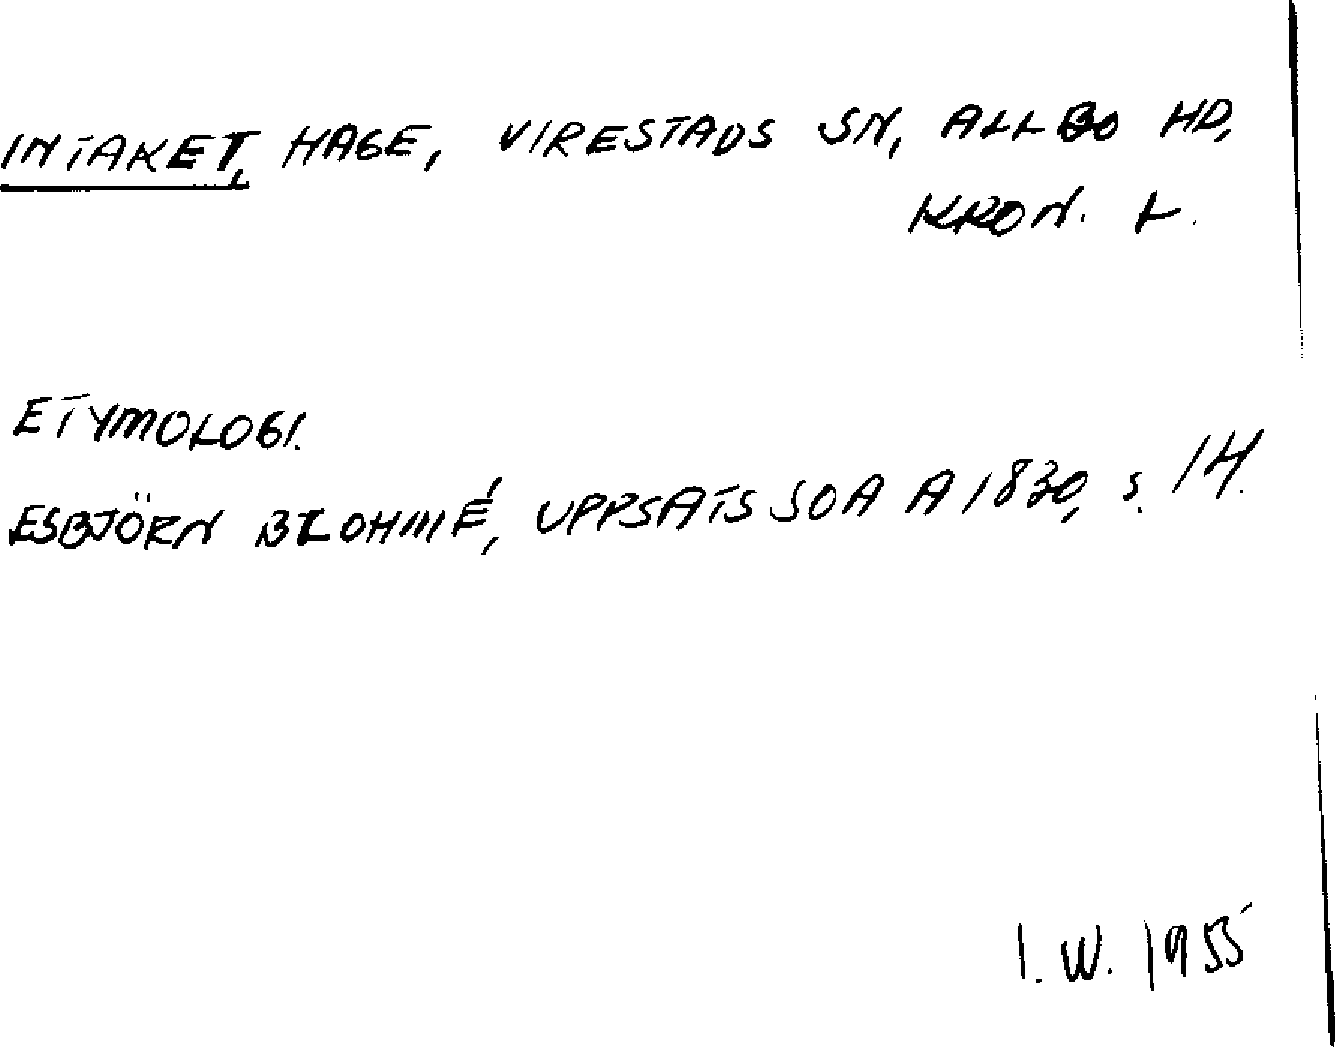 INTAKET, HAGE, VIRESTADS SN, ALLBO HD,
KRON. L.
ETYMOLOGI.
ESBJÖRN BLOHMÉ, UPPSATS SOA A 1830, S. 14.
I. W. 1955